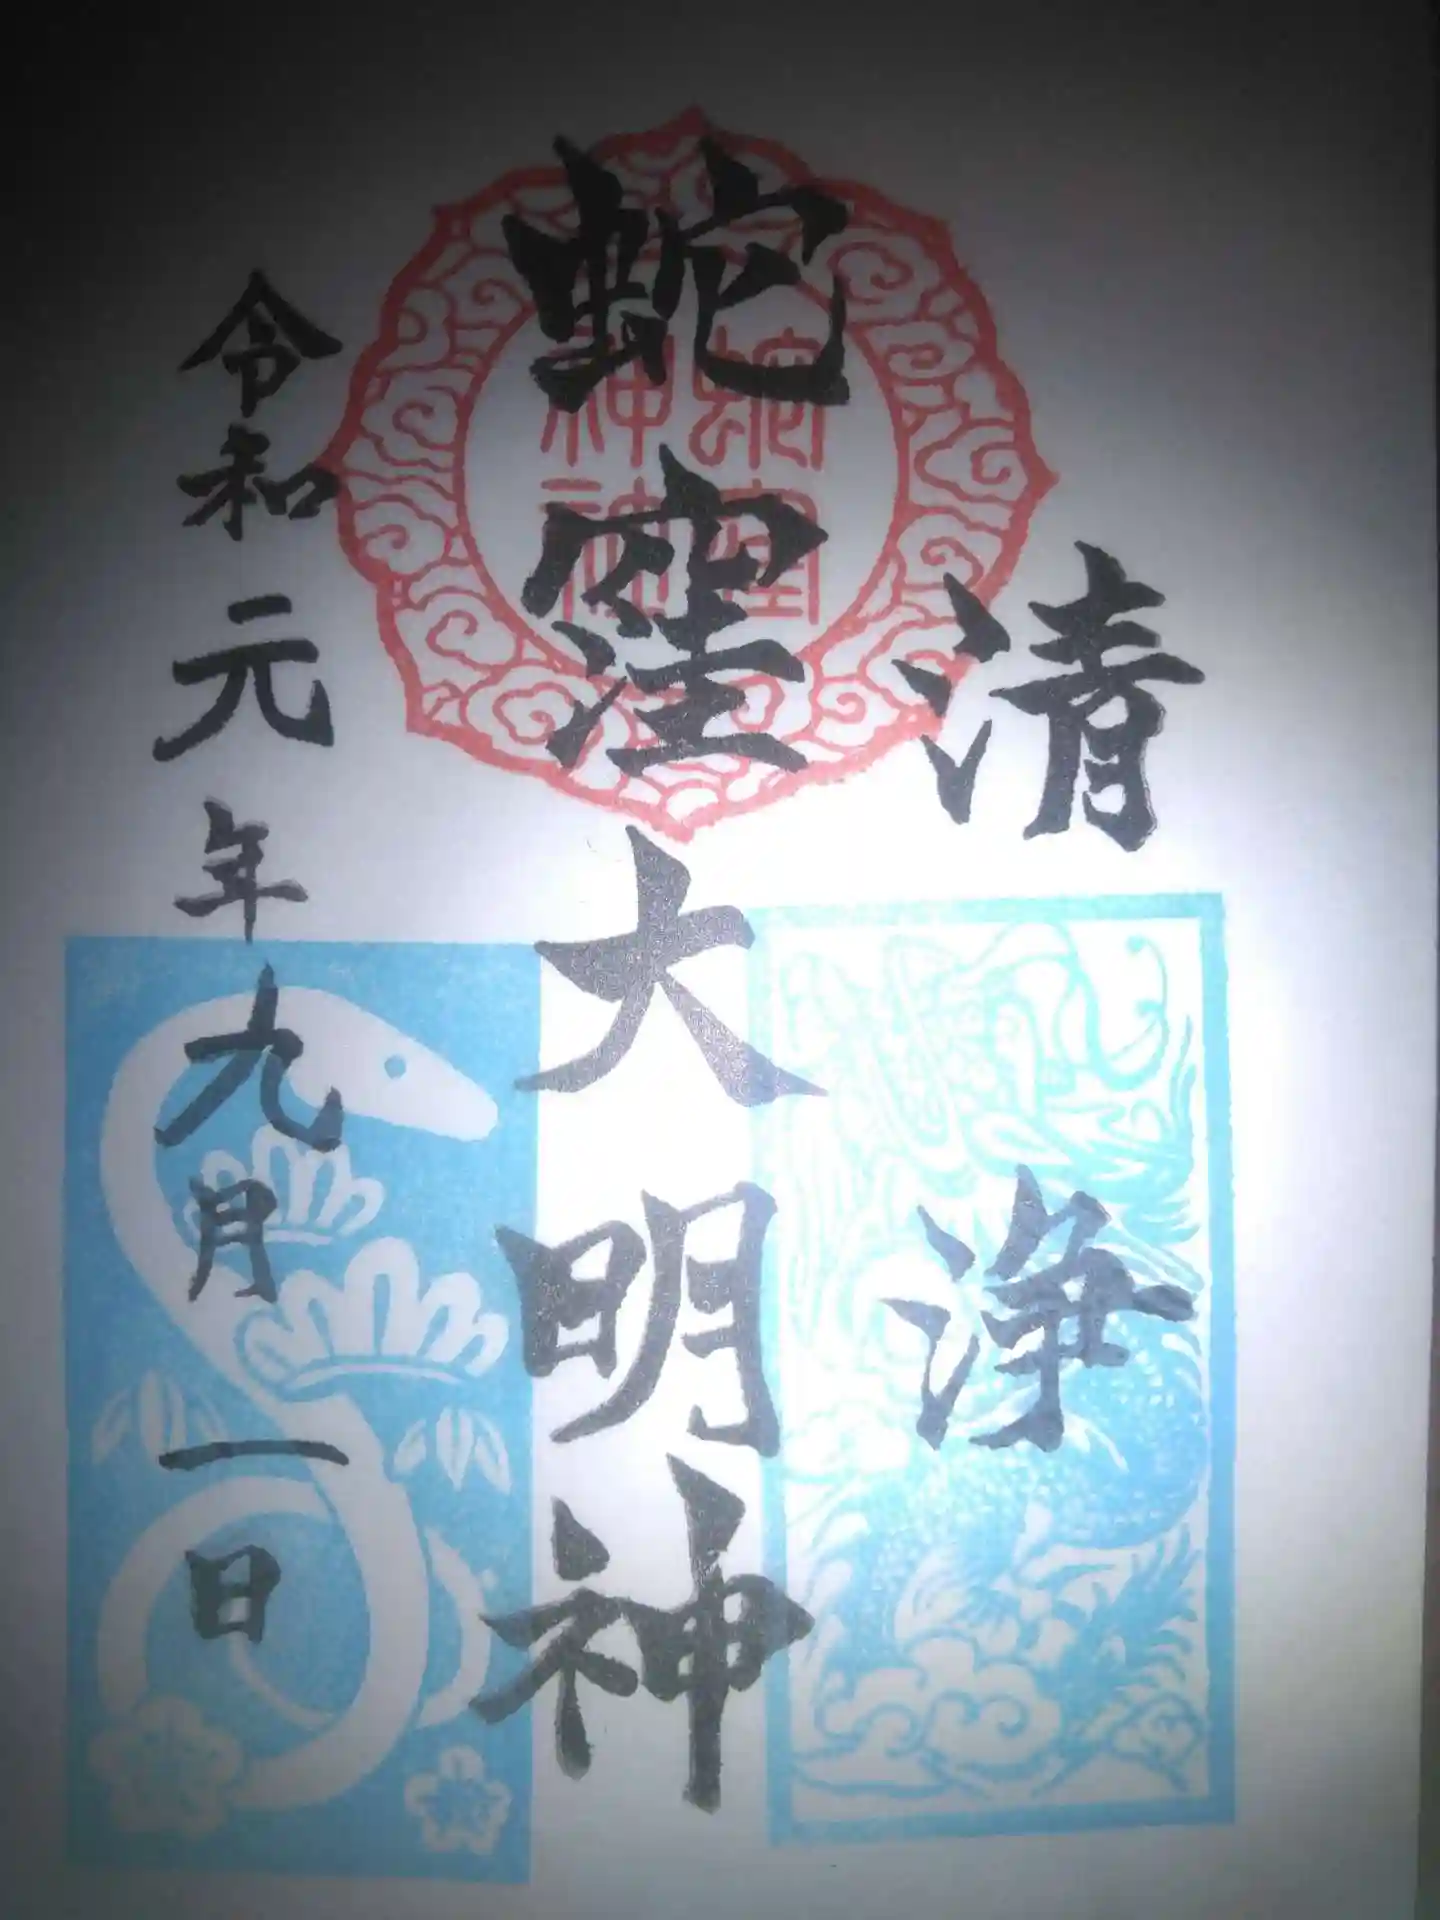 清浄
蛇窪大明神
令和元年九月一日
蛇窪
神社